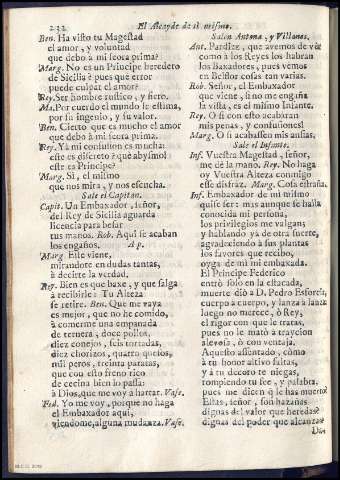 232 El Alcayde de si mismo.
Ben. Ha visto tu Magestad
el amor, y voluntad
que debo à mi seora prima?
Marg. No es un Principe heredero
de Sicilia? pues que error
puede culpar el amor?
Rey. Ser hombre rustico, y fiero.
Ma. Por cuerdo el mundo le estima,
por su ingenio, y su valor.
Ben. Cierto que es mucho el amor
que debo à mi seora prima.
Rey. Yà mi confusion es mucha:
este es discreto? què abysmo!
este es Principe?
Marg. Si, el mismo
que nos mira, y nos escucha.
Sale el Capitan.
Capit. Un Embaxador, señor,
del Rey de Sicilia aguarda
licencia para besar
tus manos. Rob. Aqui se acaban
los engaños. Ap.
Marg. Este viene,
mirandote en dudas tantas,
à decirte la verdad.
Rey. Bien es que baxe, y que salga
à recibirle: Tu Alteza
se retire. Ben. Que me vaya
es mejor, que no he comido,
à comerme una empanada
de ternera, doce pollos,
diez conejos, seis tortadas,
diez chorizos, quatro quesos,
mil peros, treinta patatas,
que con esto freno rico
de cecina bien lo passa:
à Dios, que me voy à hartar. Vase.
Fed. Yo me voy, porque no haga
el Embaxador aqui,
viendome, alguna mudanza. Vase.
Salen Antona, y Villanos.
Ant. Pardiez, que avemos de vèr
como à los Reyes los habran
los Baxadores, pues vemos
en Belflor cosas tan varias.
Rob. Señor, el Embaxador
que viene, si no me engaña
la vista, es el mismo Infante.
Rey. O si con esto acabàran
mis penas, y confusiones!
Marg. O si acabassen mis ansias.
Sale el Infante.
Inf. Vuestra Magestad, señor,
me dè la mano. Rey. No haga
oy Vuestra Alteza conmigo
esse disfraz. Marg. Cosa estraña.
Inf. Embaxador de mi mismo
quise ser: mas aunque se halla
conocida mi persona,
los privilegios me valgan;
y hablando yà de otra suerte,
agradeciendo à sus plantas
los favores que recibo,
oyga de mi mi embaxada.
El Principe Federico
entrò solo en la estacada,
muerte diò à D. Pedro Esforcia,
cuerpo à cuerpo, y lanza à lanza:
luego no merece, ò Rey,
el rigor con que le tratas,
pues no le matò à traycion
alevosa, ò con ventaja.
Aquesto assentado, còmo
à tu honor altivo faltas,
y à tu decoro te niegas,
rompiendo tu fee, y palabra,
pues me dicen què le has muerto?
Estas, señor, son hazañas
dignas del valor que heredas?
dignas del poder que alcanzas?